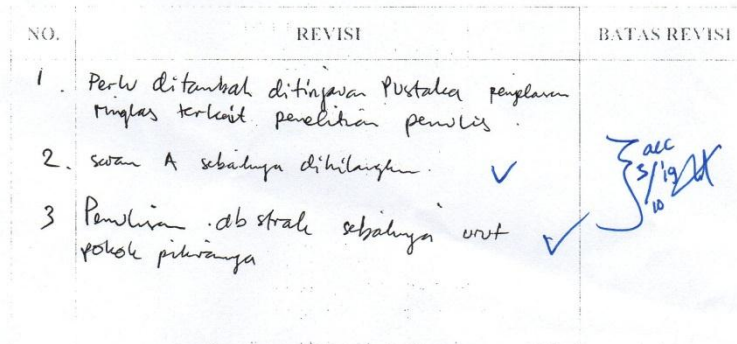 NO. REVISI BATAS REVISI
1. Perlu ditambah ditinjauan Pustaka penjelasan
ringkas terkait penelitian penulis.
2. saran A sebaiknya dihilangkan. ✓
3 Penulisan abstrak sebaiknya urut ✓
pokok pikirannya
acc
3/10 '19